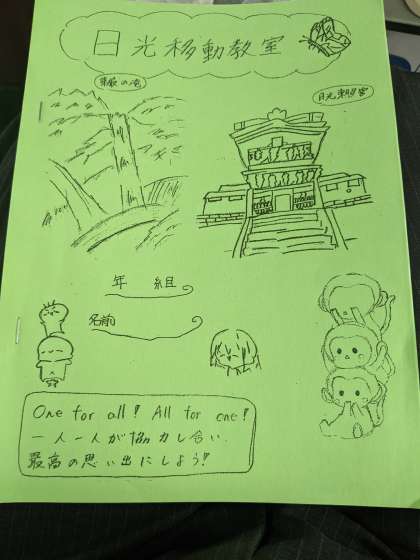 日光移動教室
華厳の滝
日光東照宮
年 組
名前
One for all! All for one!
一人一人が協力し合い、
最高の思い出にしよう!